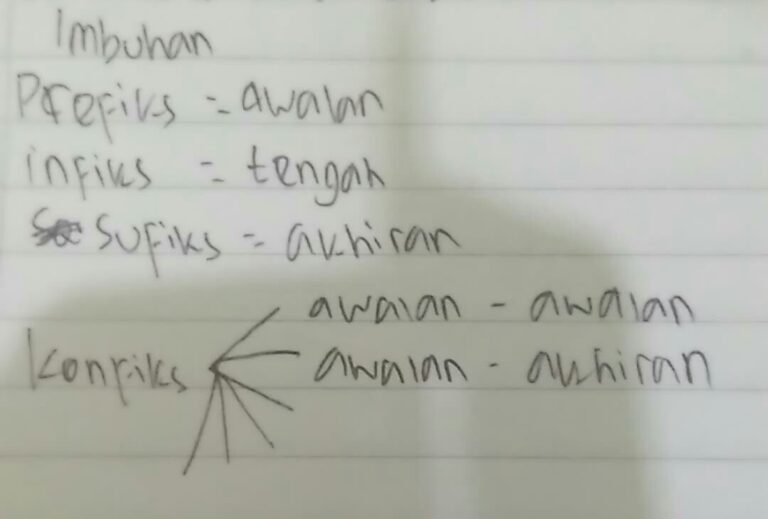 Imbuhan
Prefiks = awalan
infiks = tengah
sufiks = akhiran
awalan - awalan
Konfiks awalan - akhiran